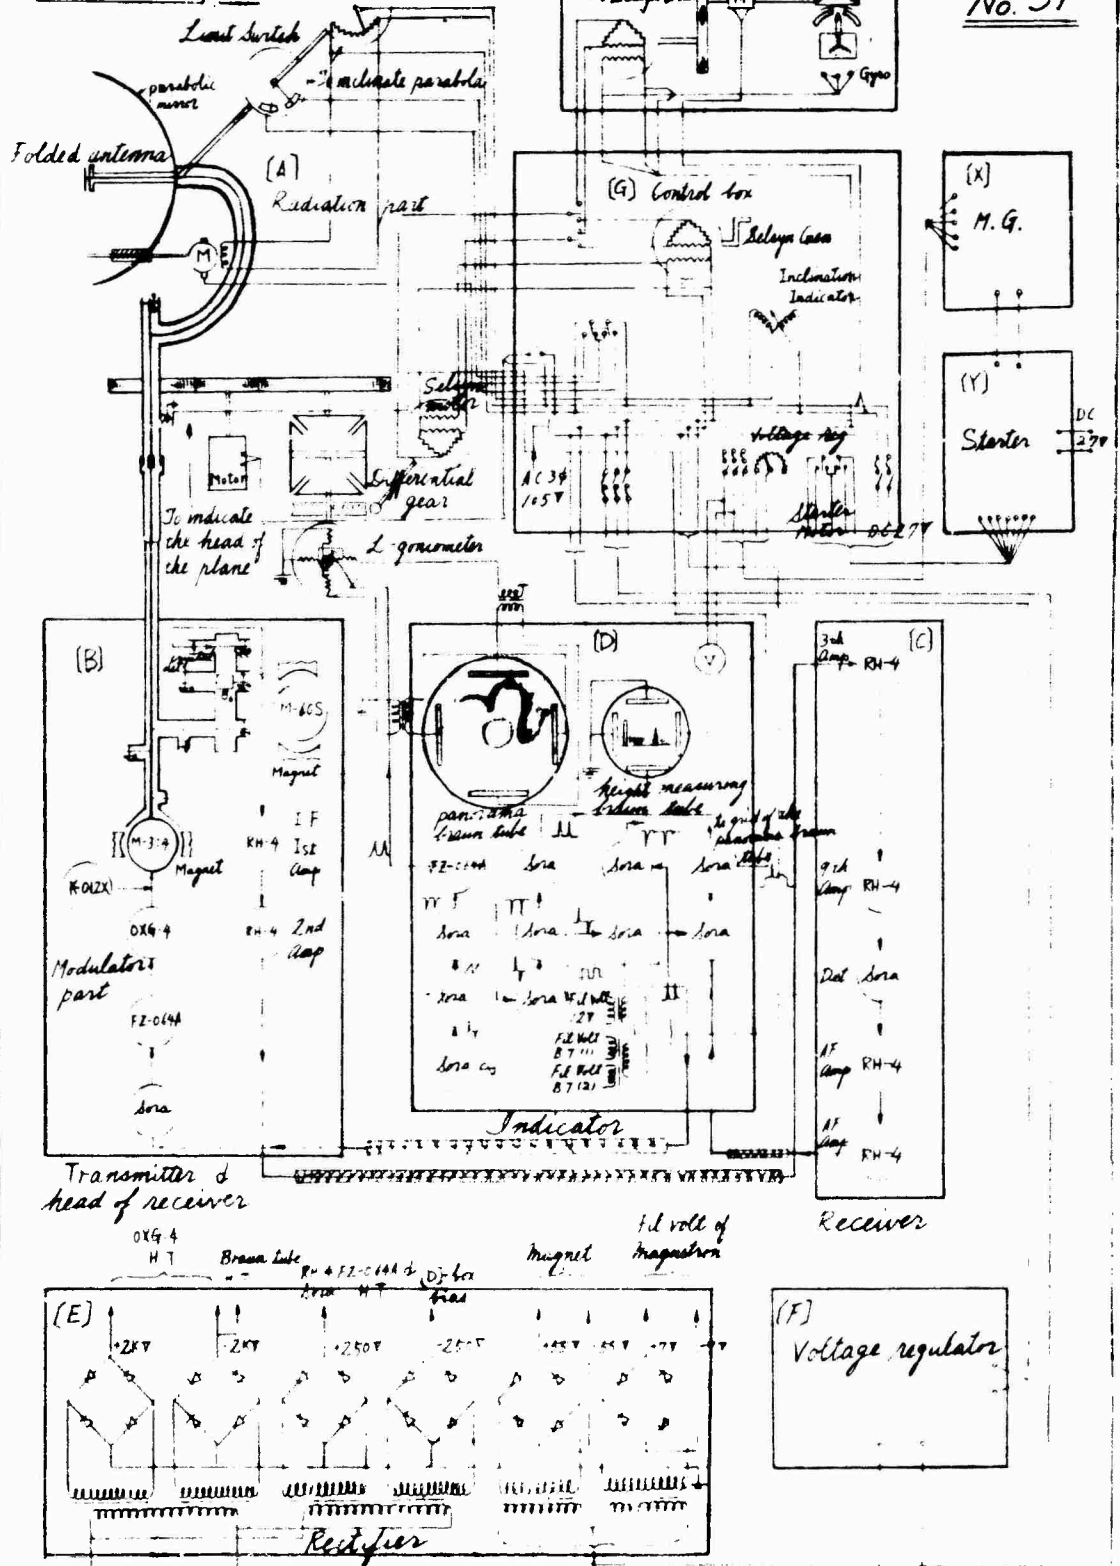 No. 37
Limit Switch
parabolic
mirror
To inclinate parabola
Gyro
Folded antenna
[A]
Radiation part
M
[G] Control box
Selsyn
Inclination
Indicator
[X]
M.G.
[Y]
Starter
DC
27V
Selsyn
motor
Voltage reg
Motor
Differential
gear
AC 3φ
105V
Starter
Motor
DC 27V
To indicate
the head of
the plane
L-goniometer
[B]
M-60S
Magnet
IF
RH-4 1st
Amp
M-314
Magnet
OXG-4
RH-4 2nd
Amp
Modulator
part
FZ-064A
Sora
Transmitter &
head of receiver
[D]
V
panorama
braun tube
height measuring
braun tube
to grid of the
panorama braun
tube
FZ-064A Sora Sora Sora
Sora Sora Sora Sora
Sora Sora Fil Volt
2V
Fil Volt
B 7 (1)
Sora Fil Volt
B 7 (2)
Indicator
[C]
3rd
Amp RH-4
9th
Amp RH-4
Det Sora
AF
Amp RH-4
AF
Amp RH-4
Receiver
OXG-4
H T
Braun tube
RH-4 FZ-064A &
Sora H T
[D]-box
bias
Magnet
Fil volt of
Magnetron
[E]
+2KV
-2KV
+250V
-250V
Rectifier
[F]
Voltage regulator